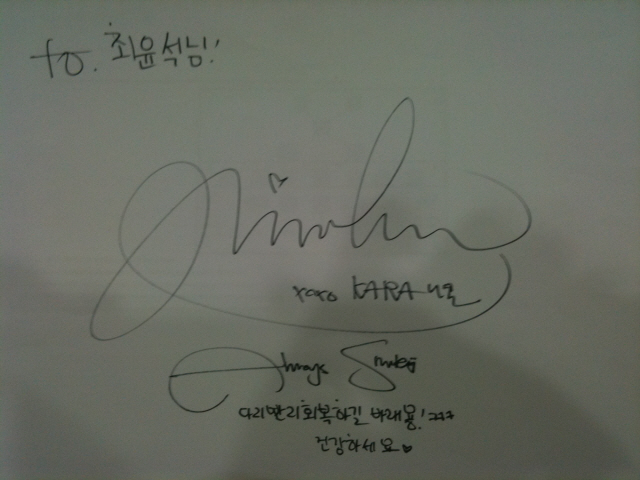 to. 최윤석님!
Nicole
xoxo KARA 니콜
Always Smile
다리빨리회복하길 바래용! ㅋㅋㅋ
건강하세요♥